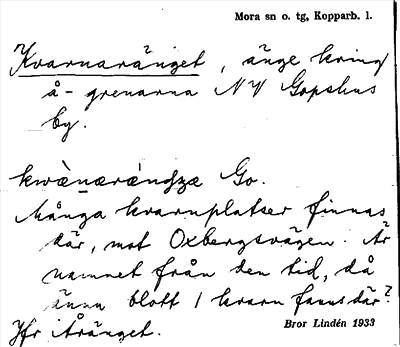 Mora sn o. tg, Kopparb. l.
Kvarnaränget, änge kring
å-grenarna NV Gopshus
by.
kwànaräŋʤa Go.
Många kvarnplatser finnas
där, mot Oxbergsvägen. Är
namnet från den tid, då
ännu blott 1 kvarn fanns där?
Jfr Åränget.
Bror Lindén 1933